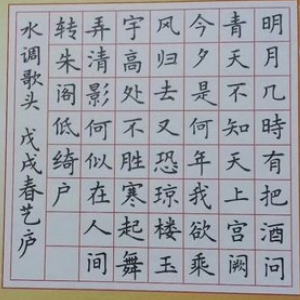 明月几時有把酒问
青天不知天上宫阙
今夕是何年我欲乘
风归去又恐琼楼玉
宇高处不胜寒起舞
弄清影何似在人间
转朱阁低绮户
水调歌头 戊戌春艺庐